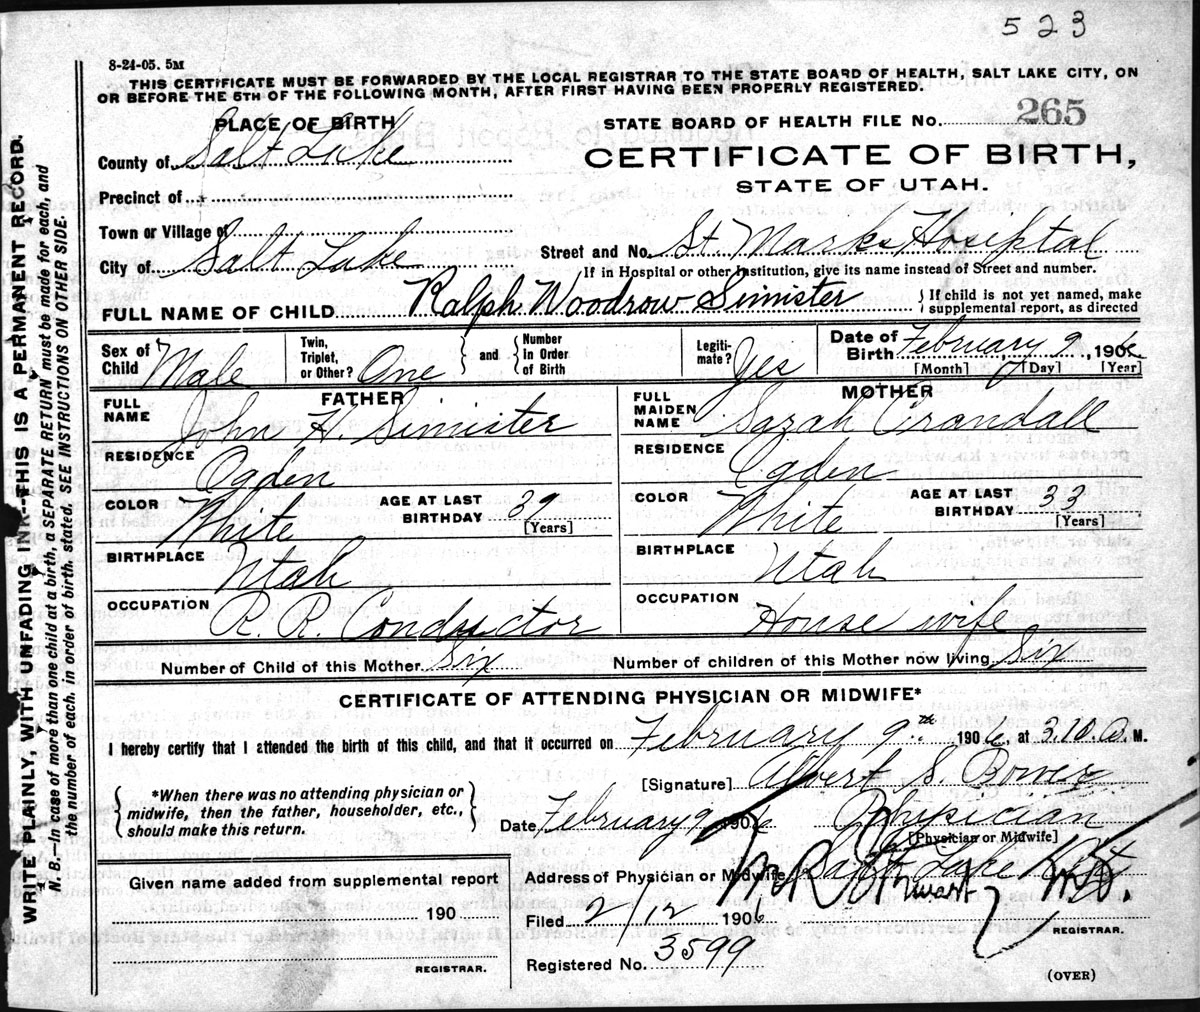 523
8-24-05. 5M
THIS CERTIFICATE MUST BE FORWARDED BY THE LOCAL REGISTRAR TO THE STATE BOARD OF HEALTH, SALT LAKE CITY, ON
OR BEFORE THE 5TH OF THE FOLLOWING MONTH, AFTER FIRST HAVING BEEN PROPERLY REGISTERED.
PLACE OF BIRTH
STATE BOARD OF HEALTH FILE No. 265
County of Salt Lake
CERTIFICATE OF BIRTH,
STATE OF UTAH.
Precinct of
Town or Village of
City of Salt Lake
Street and No. St Marks Hospital
If in Hospital or other Institution, give its name instead of Street and number.
FULL NAME OF CHILD Ralph Woodrow Simister
If child is not yet named, make
supplemental report, as directed
Sex of Child Male
Twin, Triplet, or Other? One
and
Number In Order of Birth
Legiti- mate? Yes
Date of Birth February 9, 1906
[Month] [Day] [Year]
FATHER
FULL NAME John H. Simister
RESIDENCE Ogden
COLOR White
AGE AT LAST BIRTHDAY 39
[Years]
BIRTHPLACE Utah
OCCUPATION R. R. Conductor
MOTHER
FULL MAIDEN NAME Sarah Crandall
RESIDENCE Ogden
COLOR White
AGE AT LAST BIRTHDAY 33
[Years]
BIRTHPLACE Utah
OCCUPATION House wife
Number of Child of this Mother Six
Number of children of this Mother now living Six
CERTIFICATE OF ATTENDING PHYSICIAN OR MIDWIFE*
I hereby certify that I attended the birth of this child, and that it occurred on February 9th 1906, at 3.10 A. M.
*When there was no attending physician or
midwife, then the father, householder, etc.,
should make this return.
[Signature] Albert S. Bower
Date February 9 1906
Physician
[Physician or Midwife]
Given name added from supplemental report
190
REGISTRAR.
Address of Physician or Midwife Salt Lake City
Filed 2/12 1906
M R Stewart M.D.
REGISTRAR.
Registered No. 3599
(OVER)
WRITE PLAINLY, WITH UNFADING INK--THIS IS A PERMANENT RECORD.
N. B.—In case of more than one child at a birth, a SEPARATE RETURN must be made for each, and
the number of each, in order of birth, stated. SEE INSTRUCTIONS ON OTHER SIDE.